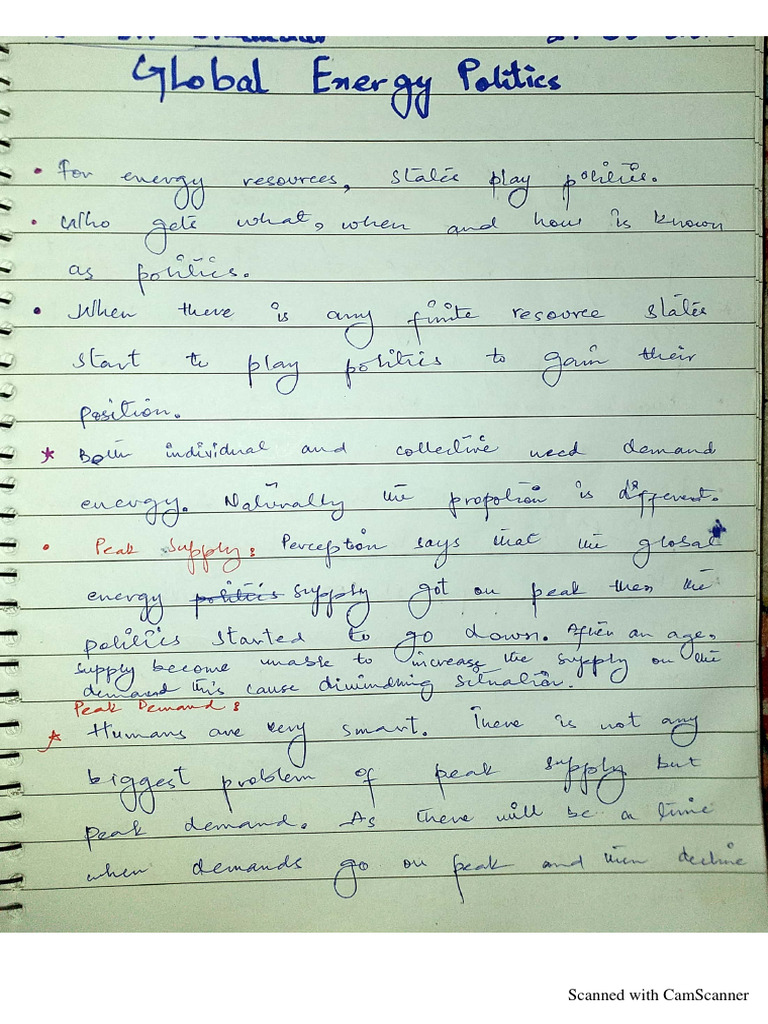 Global Energy Politics
• For energy resources, states play politics.
• Who gets what, when and how is known
as politics.
• When there is any finite resource states
start to play politics to gain their
position.
* Both individual and collective need demand
energy. Naturally the propotion is different.
• Peak Supply: Perception says that the global
energy politics supply got on peak then the
politics started to go down. After an age,
supply become unable to increase the supply on the
demand this cause diminshing situation.
Peak Demand:
* Humans are very smart. There is not any
biggest problem of peak supply but
peak demand. As there will be a time
when demands go on peak and then decline
Scanned with CamScanner